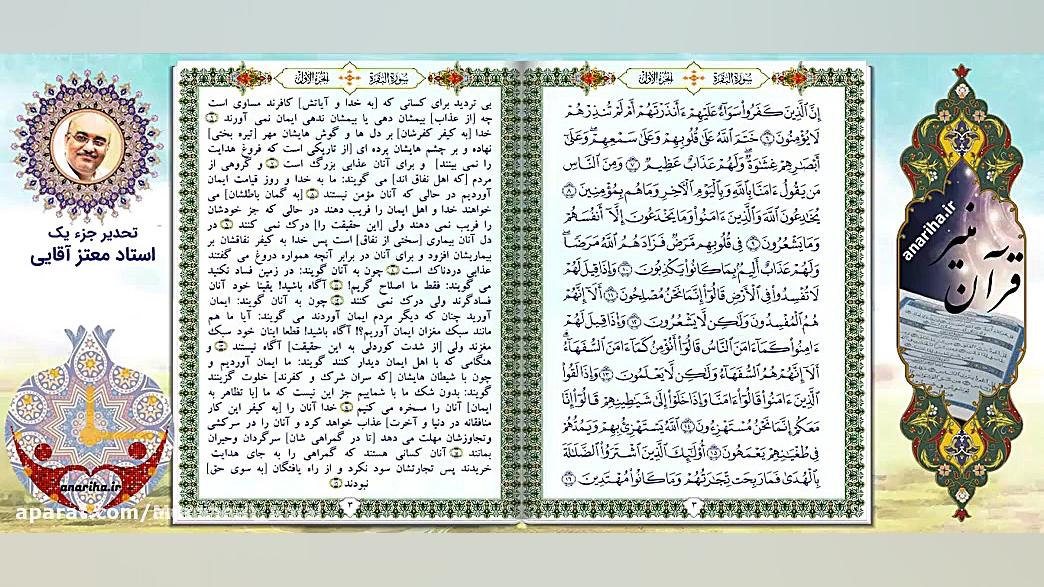 سورة البقرة
الجزء الاول
إِنَّ ٱلَّذِينَ كَفَرُوا۟ سَوَآءٌ عَلَيْهِمْ ءَأَنذَرْتَهُمْ أَمْ لَمْ تُنذِرْهُمْ
لَا يُؤْمِنُونَ ٦ خَتَمَ ٱللَّهُ عَلَىٰ قُلُوبِهِمْ وَعَلَىٰ سَمْعِهِمْ ۖ وَعَلَىٰٓ
أَبْصَٰرِهِمْ غِشَٰوَةٌ ۖ وَلَهُمْ عَذَابٌ عَظِيمٌ ٧ وَمِنَ ٱلنَّاسِ
مَن يَقُولُ ءَامَنَّا بِٱللَّهِ وَبِٱلْيَوْمِ ٱلْءَاخِرِ وَمَا هُم بِمُؤْمِنِينَ ٨
يُخَٰدِعُونَ ٱللَّهَ وَٱلَّذِينَ ءَامَنُوا۟ وَمَا يَخْدَعُونَ إِلَّآ أَنفُسَهُمْ
وَمَا يَشْعُرُونَ ٩ فِى قُلُوبِهِم مَّرَضٌ فَزَادَهُمُ ٱللَّهُ مَرَضًا ۖ
وَلَهُمْ عَذَابٌ أَلِيمٌۢ بِمَا كَانُوا۟ يَكْذِبُونَ ١٠ وَإِذَا قِيلَ لَهُمْ
لَا تُفْسِدُوا۟ فِى ٱلْأَرْضِ قَالُوٓا۟ إِنَّمَا نَحْنُ مُصْلِحُونَ ١١ أَلَآ إِنَّهُمْ
هُمُ ٱلْمُفْسِدُونَ وَلَٰكِن لَّا يَشْعُرُونَ ١٢ وَإِذَا قِيلَ لَهُمْ
ءَامِنُوا۟ كَمَآ ءَامَنَ ٱلنَّاسُ قَالُوٓا۟ أَنُؤْمِنُ كَمَآ ءَامَنَ ٱلسُّفَهَآءُ ۗ
أَلَآ إِنَّهُمْ هُمُ ٱلسُّفَهَآءُ وَلَٰكِن لَّا يَعْلَمُونَ ١٣ وَإِذَا لَقُوا۟
ٱلَّذِينَ ءَامَنُوا۟ قَالُوٓا۟ ءَامَنَّا وَإِذَا خَلَوْا۟ إِلَىٰ شَيَٰطِينِهِمْ قَالُوٓا۟ إِنَّا
مَعَكُمْ إِنَّمَا نَحْنُ مُسْتَهْزِءُونَ ١٤ ٱللَّهُ يَسْتَهْزِئُ بِهِمْ وَيَمُدُّهُمْ
فِى طُغْيَٰنِهِمْ يَعْمَهُونَ ١٥ أُو۟لَٰٓئِكَ ٱلَّذِينَ ٱشْتَرَوُا۟ ٱلضَّلَٰلَةَ
بِٱلْهُدَىٰ فَمَا رَبِحَت تِّجَٰرَتُهُمْ وَمَا كَانُوا۟ مُهْتَدِينَ ١٦
٣
سورة البقرة
الجزء الاول
بی تردید برای کسانی که [به خدا و آیاتش] کافرند مساوی است
چه [از عذاب] بیمشان دهی یا بیمشان ندهی ایمان نمی آورند
خدا [به کیفر کفرشان] بر دل ها و گوش هایشان مهر [تیره بختی]
نهاده و بر چشم هایشان پرده ای [از تاریکی است که فروغ هدایت
را نمی بینند] و برای آنان عذابی بزرگ است و گروهی از
مردم [که اهل نفاق اند] می گویند: ما به خدا و روز قیامت ایمان
آوردیم در حالی که آنان مؤمن نیستند [به گمان باطلشان] می
خواهند خدا و اهل ایمان را فریب دهند در حالی که جز خودشان
را فریب نمی دهند ولی [این حقیقت را] درک نمی کنند در
دل آنان بیماری [سختی از نفاق] است پس خدا به کیفر نفاقشان بر
بیماریشان افزود و برای آنان در برابر آنچه همواره دروغ می گفتند
عذابی دردناک است چون به آنان گویند: در زمین فساد نکنید
می گویند: فقط ما اصلاح گریم! آگاه باشید! یقینا خود آنان
فسادگرند ولی درک نمی کنند چون به آنان گویند: ایمان
آورید چنان که دیگر مردم ایمان آوردند می گویند: آیا ما هم
مانند سبک مغزان ایمان آوریم؟! آگاه باشید! قطعا اینان خود سبک
مغزند ولی [از شدت کوردلی به این حقیقت] آگاه نیستند و
هنگامی که با اهل ایمان دیدار کنند گویند: ما ایمان آوردیم و
چون با شیطان هایشان [که سران شرک و کفرند] خلوت گزینند
گویند: بدون شک ما با شماییم جز این نیست که ما [با تظاهر به
ایمان] آنان را مسخره می کنیم خدا آنان را [به کیفر این کار
منافقانه در دنیا و آخرت] عذاب خواهد کرد و آنان را در سرکشی
وتجاوزشان مهلت می دهد [تا در گمراهی شان] سرگردان وحیران
بمانند آنان کسانی هستند که گمراهی را به جای هدایت
خریدند پس تجارتشان سود نکرد و از راه یافتگان [به سوی حق]
نبودند
٣
تحدیر جزء یک
استاد معتز آقایی
anariha.ir
aparat.com/
anariha.ir
قرآن منیر